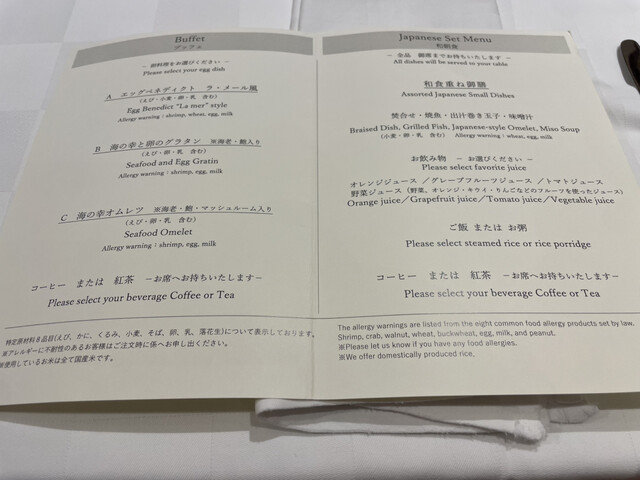 Buffet
ブッフェ
－ 卵料理をお選びください －
Please select your egg dish
A　エッグベネディクト　ラ・メール風
（えび・小麦・卵・乳　含む）
Egg Benedict "La mer" style
Allergy warning：shrimp, wheat, egg, milk
B　海の幸と卵のグラタン　※海老・鮑入り
（えび・卵・乳　含む）
Seafood and Egg Gratin
Allergy warning：shrimp, egg, milk
C　海の幸オムレツ　※海老・鮑・マッシュルーム入り
（えび・卵・乳　含む）
Seafood Omelet
Allergy warning：shrimp, egg, milk
コーヒー　または　紅茶　－お席へお持ちいたします－
Please select your beverage Coffee or Tea
特定原材料８品目(えび、かに、くるみ、小麦、そば、卵、乳、落花生)について表示しております。
※アレルギーに不耐性のあるお客様はご注文時に係へお申し出ください。
※使用しているお米は全て国産米です。
Japanese Set Menu
和朝食
－ 全品　御席までお持ちいたします －
All dishes will be served to your table
和食重ね御膳
Assorted Japanese Small Dishes
焚合せ・焼魚・出汁巻き玉子・味噌汁
Braised Dish, Grilled Fish, Japanese-style Omelet, Miso Soup
（小麦・卵・乳　含む）　Allergy warning：wheat, egg, milk
お飲み物　－ お選びください －
Please select favorite juice
オレンジジュース ／グレープフルーツジュース ／トマトジュース
野菜ジュース（野菜、オレンジ・キウイ・りんごなどのフルーツを使ったジュース）
Orange juice／Grapefruit juice／Tomato juice／Vegetable juice
ご飯 または お粥
Please select steamed rice or rice porridge
コーヒー　または　紅茶　－お席へお持ちいたします－
Please select your beverage Coffee or Tea
The allergy warnings are listed from the eight common food allergy products set by law.
Shrimp, crab, walnut, wheat, buckwheat, egg, milk, and peanut.
※Please let us know if you have any food allergies.
※We offer domestically produced rice.